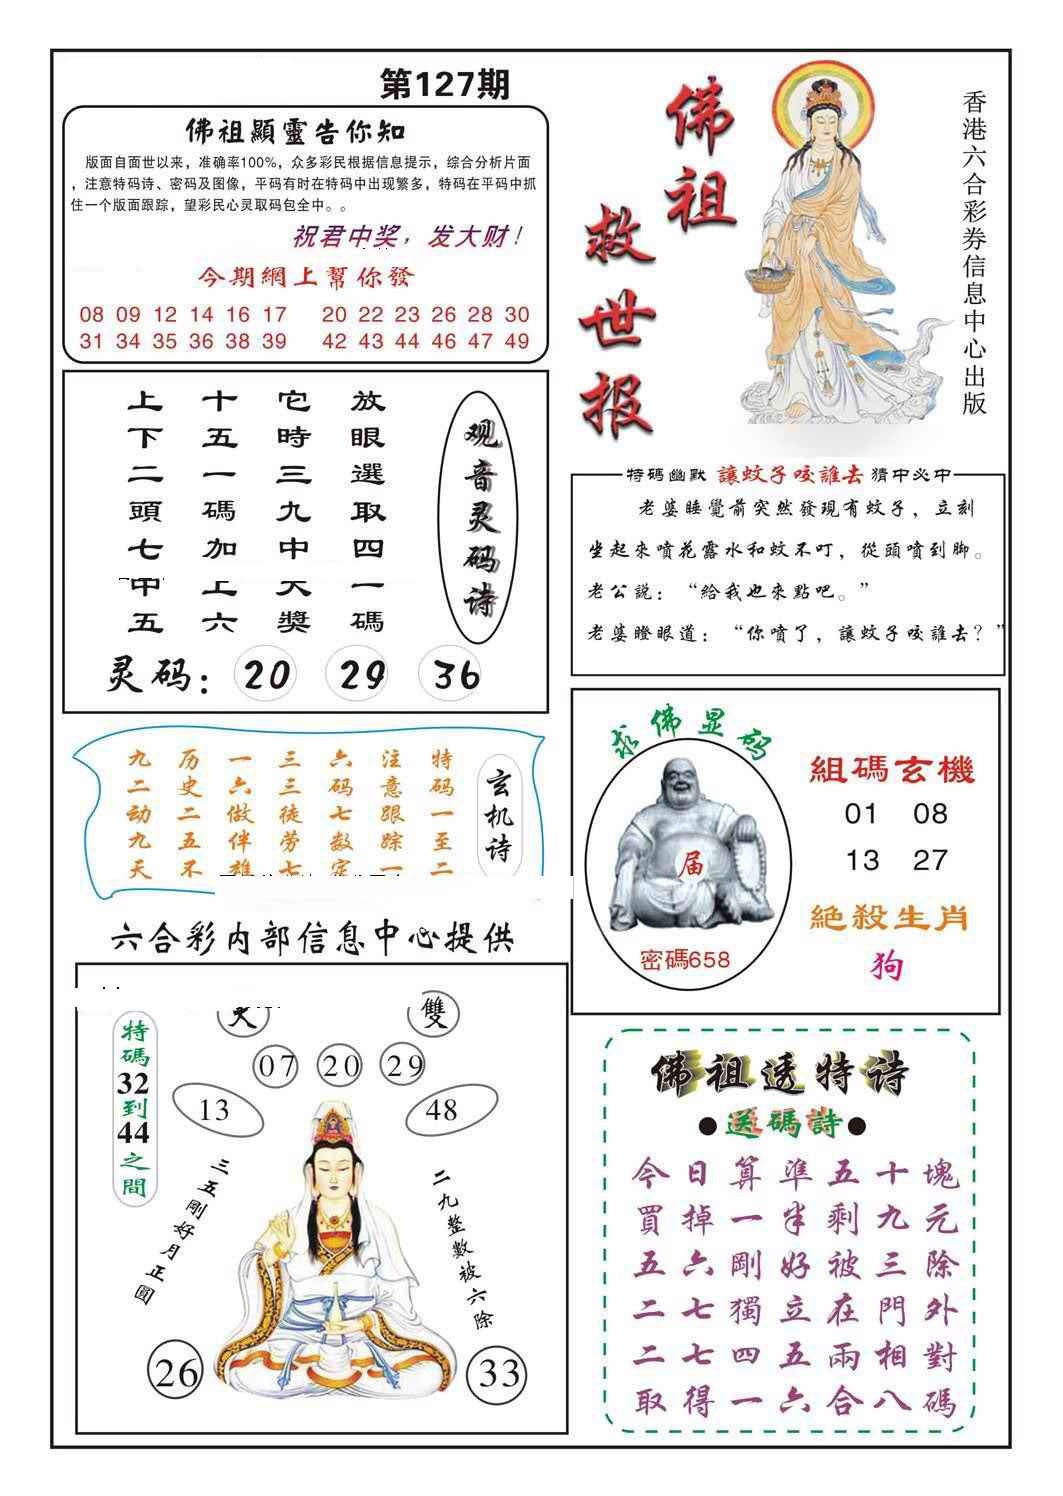 第127期
佛祖顯靈告你知
版面自面世以来，准确率100%，众多彩民根据信息提示，综合分析片面
，注意特码诗、密码及图像，平码有时在特码中出现繁多，特码在平码中抓
住一个版面跟踪，望彩民心灵取码包全中。。
祝君中奖，发大财！
今期網上幫你發
08 09 12 14 16 17 20 22 23 26 28 30
31 34 35 36 38 39 42 43 44 46 47 49
佛祖
救世报
香港六合彩券信息中心出版
观音灵码诗
放眼選取四一碼
它時三九中大獎
十五一碼加上六
上下二頭七中五
灵码：20 29 36
特碼幽默 讓蚊子咬誰去 猜中必中
老婆睡覺前突然發現有蚊子，立刻
坐起來噴花露水和蚊不叮，從頭噴到脚。
老公説：“給我也來點吧。”
老婆瞪眼道：“你噴了，讓蚊子咬誰去？”
玄机诗
特码一至二
注意跟踪一
六码七数定
三三徒劳七
一六做伴雄
历史二五不
九二动九天
求佛显码
届
密碼658
組碼玄機
01 08
13 27
絶殺生肖
狗
六合彩内部信息中心提供
雙
特碼32到44之間
07 20 29
13 48
三五剛好月正圓
二九整數被六除
26 33
佛祖透特诗
●送碼詩●
今日算準五十塊
買掉一半剩九元
五六剛好被三除
二七獨立在門外
二七四五兩相對
取得一六合八碼